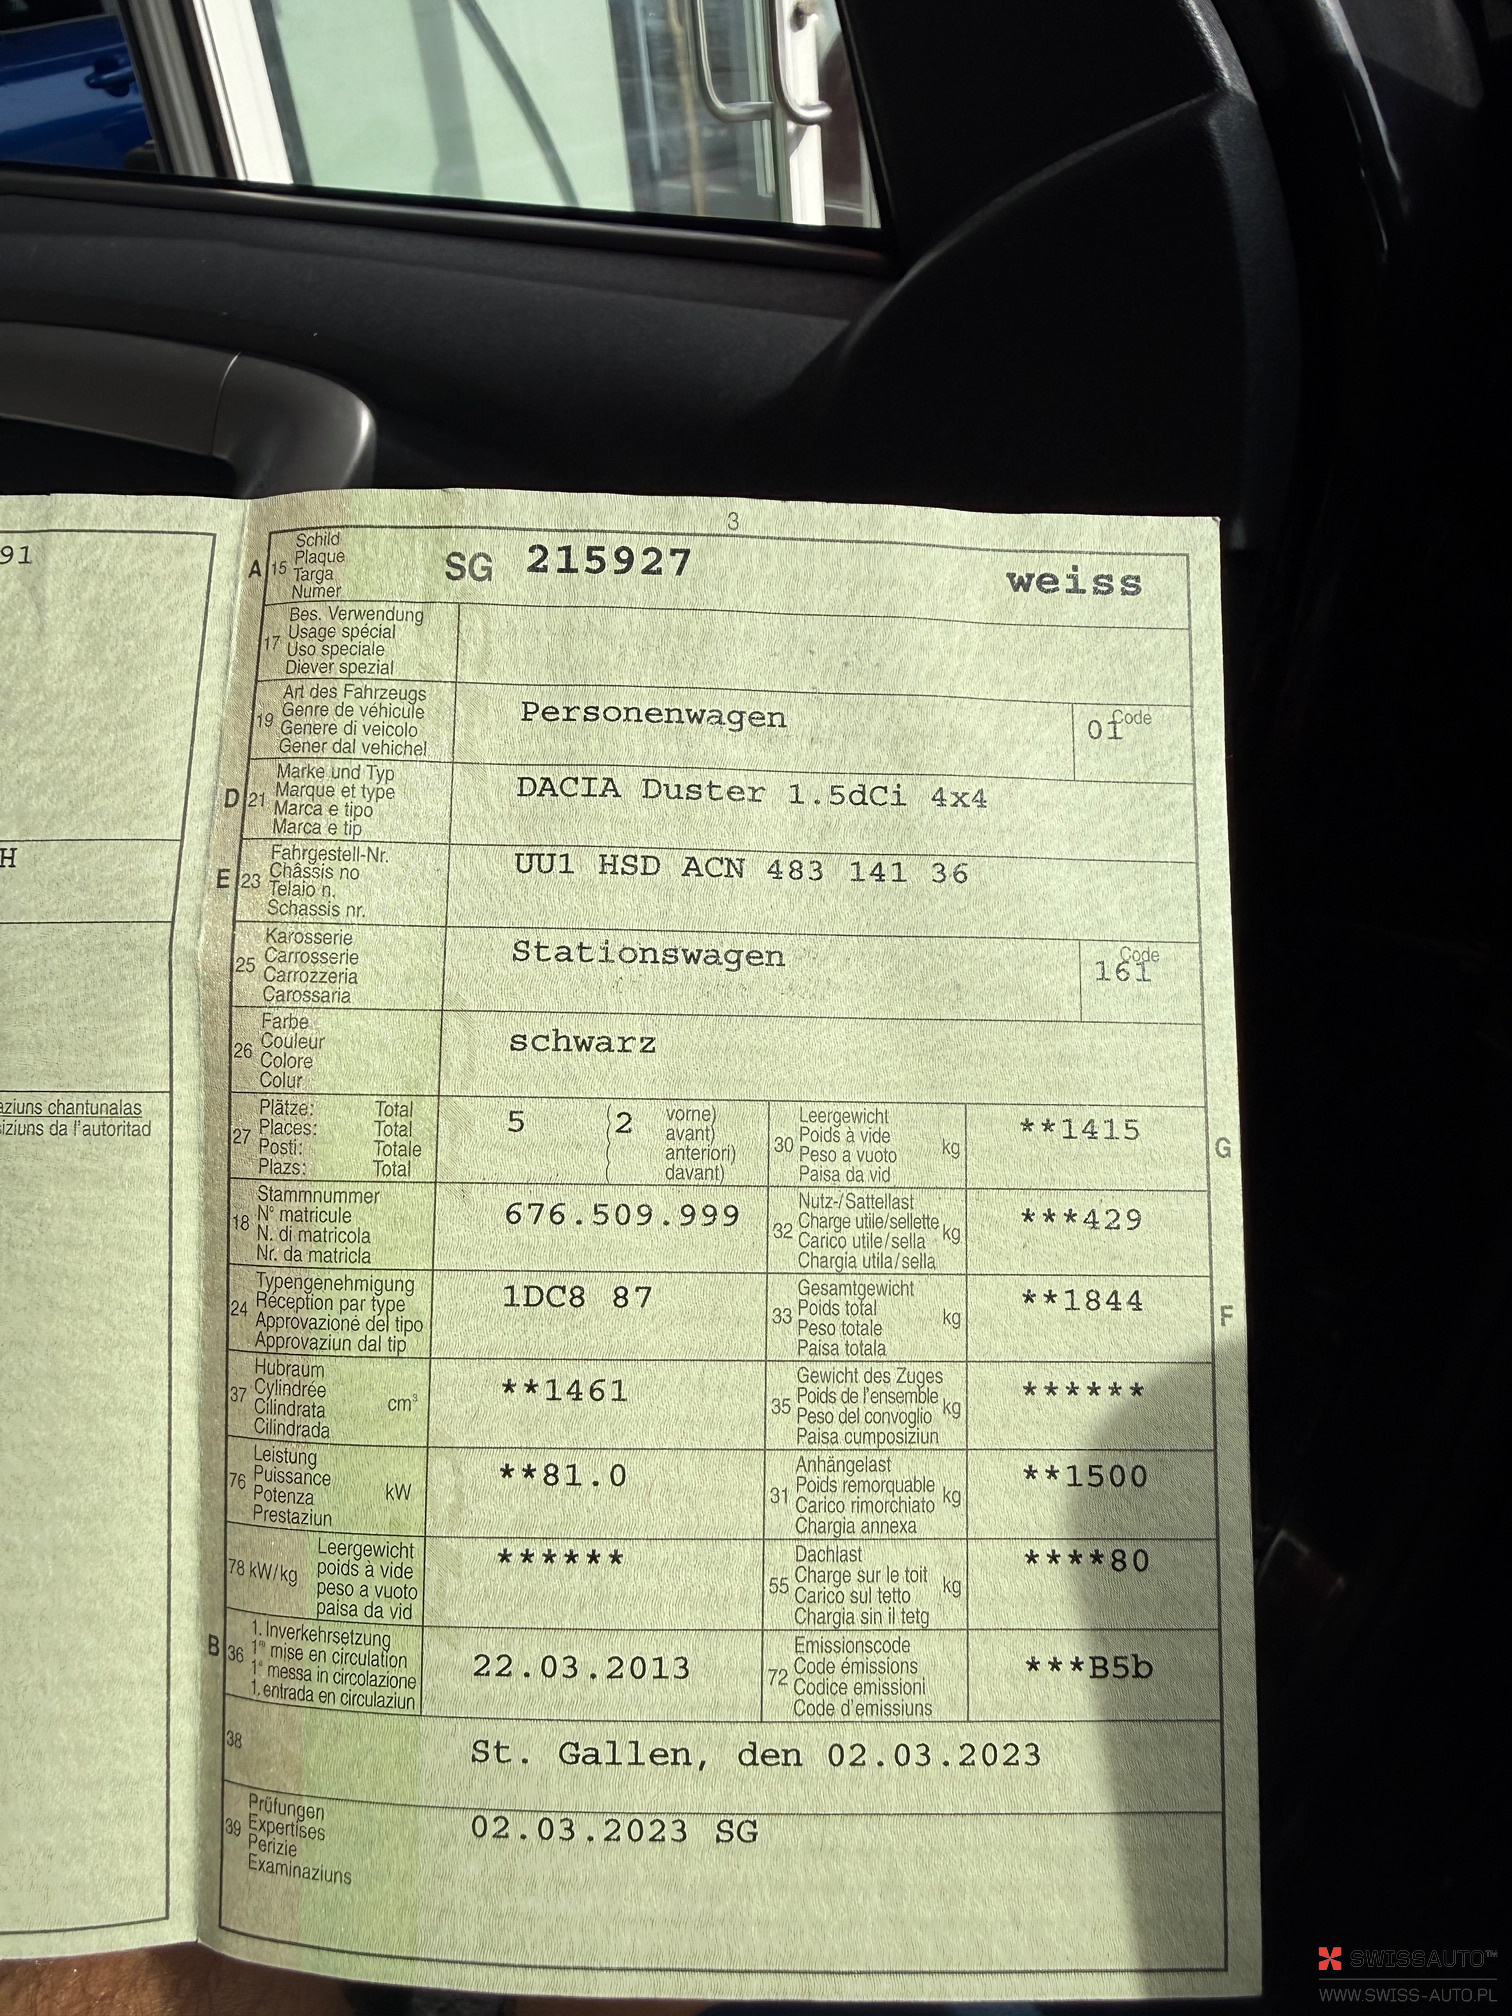 91
H
aziuns chantunalas
iziuns da l'autoritad
3
A 15 Schild
Plaque
Targa
Numer
SG 215927 weiss
17 Bes. Verwendung
Usage spécial
Uso speciale
Diever spezial
19 Art des Fahrzeugs
Genre de véhicule
Genere di veicolo
Gener dal vehichel
Personenwagen
Code
01
D 21 Marke und Typ
Marque et type
Marca e tipo
Marca e tip
DACIA Duster 1.5dCi 4x4
E 23 Fahrgestell-Nr.
Châssis no
Telaio n.
Schassis nr.
UU1 HSD ACN 483 141 36
25 Karosserie
Carrosserie
Carrozzeria
Carossaria
Stationswagen
Code
161
26 Farbe
Couleur
Colore
Colur
schwarz
27 Plätze: Total
Places: Total
Posti: Totale
Plazs: Total
5 (2 vorne)
avant)
anteriori)
( davant)
30 Leergewicht
Poids à vide kg
Peso a vuoto
Paisa da vid
**1415
G
18 Stammnummer
N° matricule
N. di matricola
Nr. da matricla
676.509.999
32 Nutz-/Sattellast
Charge utile/sellette kg
Carico utile/sella
Chargia utila/sella
***429
24 Typengenehmigung
Réception par type
Approvazione del tipo
Approvaziun dal tip
1DC8 87
33 Gesamtgewicht
Poids total kg
Peso totale
Paisa totala
**1844
F
37 Hubraum
Cylindrée cm³
Cilindrata
Cilindrada
**1461
35 Gewicht des Zuges
Poids de l'ensemble kg
Peso del convoglio
Paisa cumposiziun
******
76 Leistung
Puissance kW
Potenza
Prestaziun
**81.0
31 Anhängelast
Poids remorquable kg
Carico rimorchiato
Chargia annexa
**1500
78 kW/kg Leergewicht
poids à vide
peso a vuoto
paisa da vid
******
55 Dachlast
Charge sur le toit kg
Carico sul tetto
Chargia sin il tetg
****80
B 36 1. Inverkehrsetzung
1re mise en circulation
1a messa in circolazione
1. entrada en circulaziun
22.03.2013
72 Emissionscode
Code émissions
Codice emissioni
Code d'emissiuns
***B5b
38
St. Gallen, den 02.03.2023
39 Prüfungen
Expertises
Perizie
Examinaziuns
02.03.2023 SG
SWISSAUTO™
WWW.SWISS-AUTO.PL